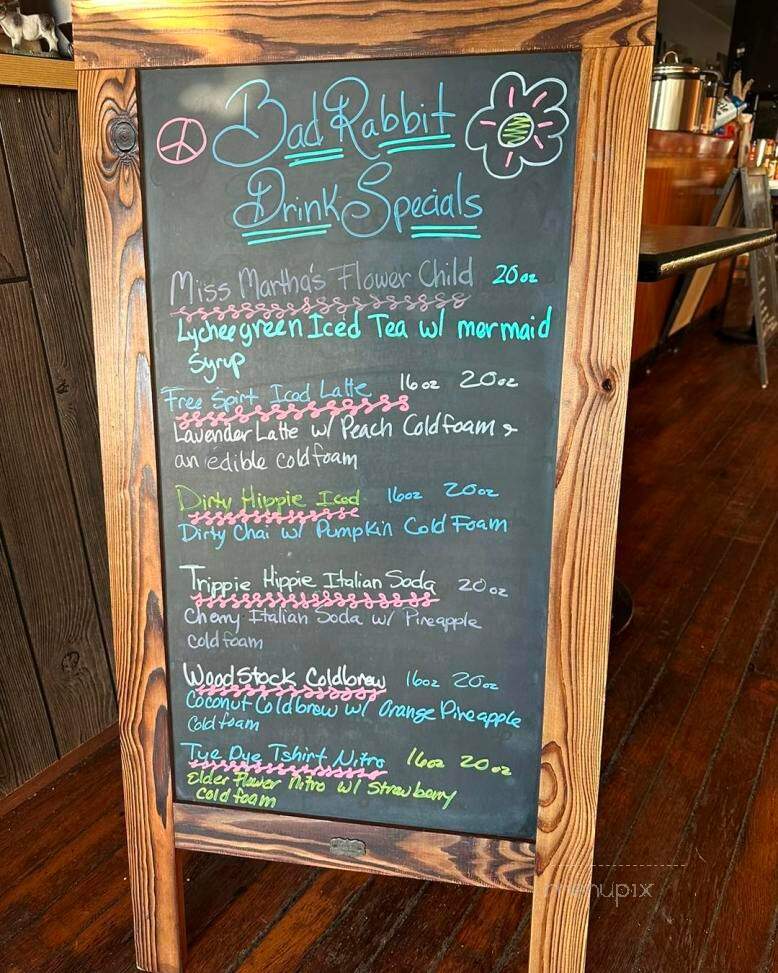 Bad Rabbit
Drink Specials
Miss Martha's Flower Child 20oz
Lychee green Iced Tea w/ mermaid
Syrup
Free Spirt Iced Latte 16oz 20oz
Lavender Latte w/ Peach Coldfoam &
an edible coldfoam
Dirty Hippie Iced 16oz 20oz
Dirty Chai w/ Pumpkin Cold Foam
Trippie Hippie Italian Soda 20oz
Cherry Italian Soda w/ Pineapple
coldfoam
Wood Stock Coldbrew 16oz 20oz
Coconut Coldbrew w/ Orange Pineapple
Coldfoam
Tye Dye Tshirt Nitro 16oz 20oz
Elder Flower Nitro w/ Strawberry
Coldfoam
menupix